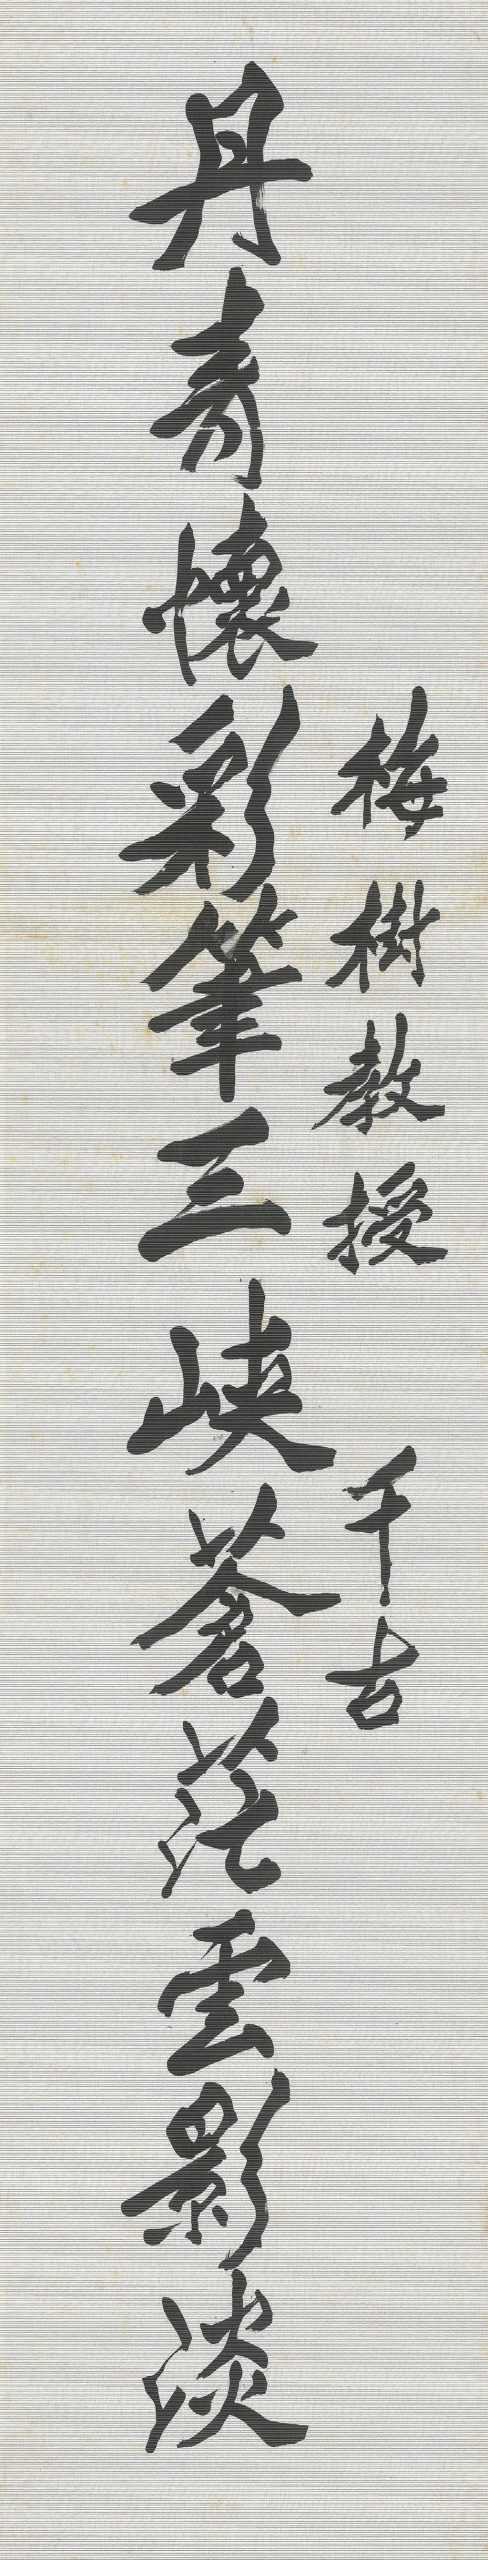 梅樹教授 千古
丹青懷彩筆三峽蒼茫雲影淡